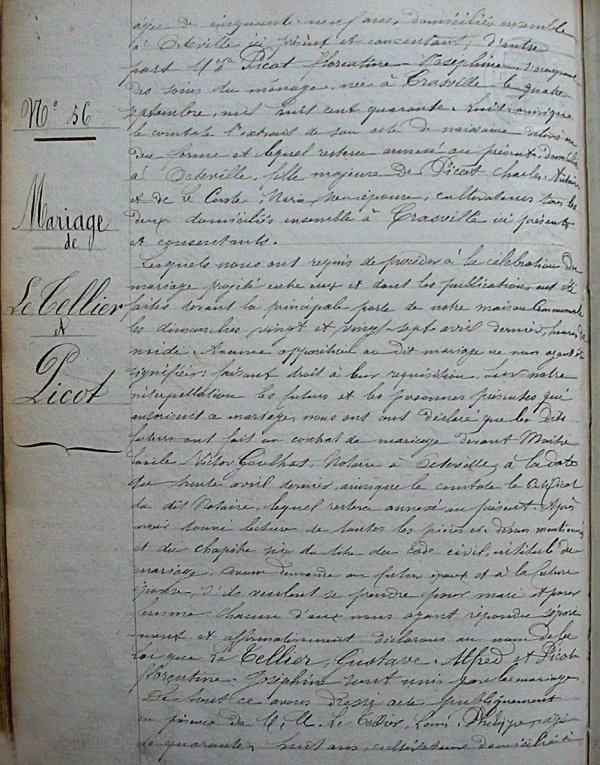 N° 56
Mariage
de
Le Tellier
et
Picot
âgée de cinquante neuf ans, domiciliés ensemble
à Octeville ici présent et consentant, d'autre
part Mlle Picot Florentine Joséphine, s'occupant
des soins du ménage, née à Crasville le quatre
septembre, mil huit cent quarante huit ainsi que
le constate l'extrait de son acte de naissance délivré en
due forme et lequel restera annexé au présent, domiciliée
à Octeville, fille majeure de Picot Charles,
et de Le Conte, cultivateurs tous les
deux domiciliés ensemble à Crasville ici présents
et consentants.
Lesquels nous ont requis de procéder à la célébration du
mariage projeté entre eux et dont les publications ont été
faites devant la principale porte de notre maison Commune
les dimanches vingt et vingt sept avril dernier, heures de
midi. Aucune opposition au dit mariage ne nous ayant été
signifiée faisant droit à leur réquisition, sur notre
interpellation les futurs et les personnes présentes qui
autorisent ce mariage, nous ont déclaré que les dits
futurs ont fait un contrat de mariage devant Maître
Victor Notaire à Octeville, à la date
du trente avril dernier, ainsi que le constate le certificat
du dit Notaire, lequel restera annexé au présent. Après
avoir donné lecture de toutes les pièces ci-dessus mentionnées
et du chapitre six du titre du code civil, intitulé du
mariage, avons demandé au futur époux et à la future
épouse, s'ils veulent se prendre pour mari et pour
femme chacun d'eux nous ayant répondu séparé
ment et affirmativement déclarons au nom de la
loi que Le Tellier, Gustave Alfred et Picot
Florentine Joséphine sont unis par le mariage
De tout ce avons dressé acte publiquement
en présence de M.M. Le Tellier, Louis Philippe, âgé
de quarante huit ans, cultivateur domicilié à